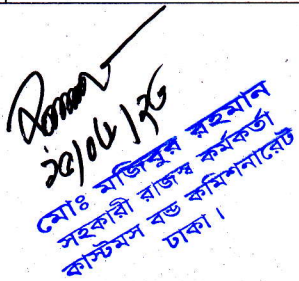 মোঃ মজিবুর রহমান
সহকারী রাজস্ব কর্মকর্তা
কাস্টমস বন্ড কমিশনারেট
ঢাকা।